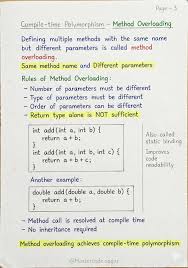 Page - 3
Compile-time Polymorphism - Method Overloading
Defining multiple methods with the same name
but different parameters is called method
overloading.
Same method name and Different parameters
Rules of Method Overloading:
- Number of parameters must be different
- Type of parameters must be different
- Order of parameters can be different
- Return type alone is NOT sufficient
int add(int a, int b) {
return a + b;
}
int add(int a, int b, int c) {
return a + b + c;
}
Also called
static binding
Improves
code
readability
Another example:
double add(double a, double b) {
return a + b;
}
- Method call is resolved at compile time
- No inheritance required
Method overloading achieves compile-time polymorphism